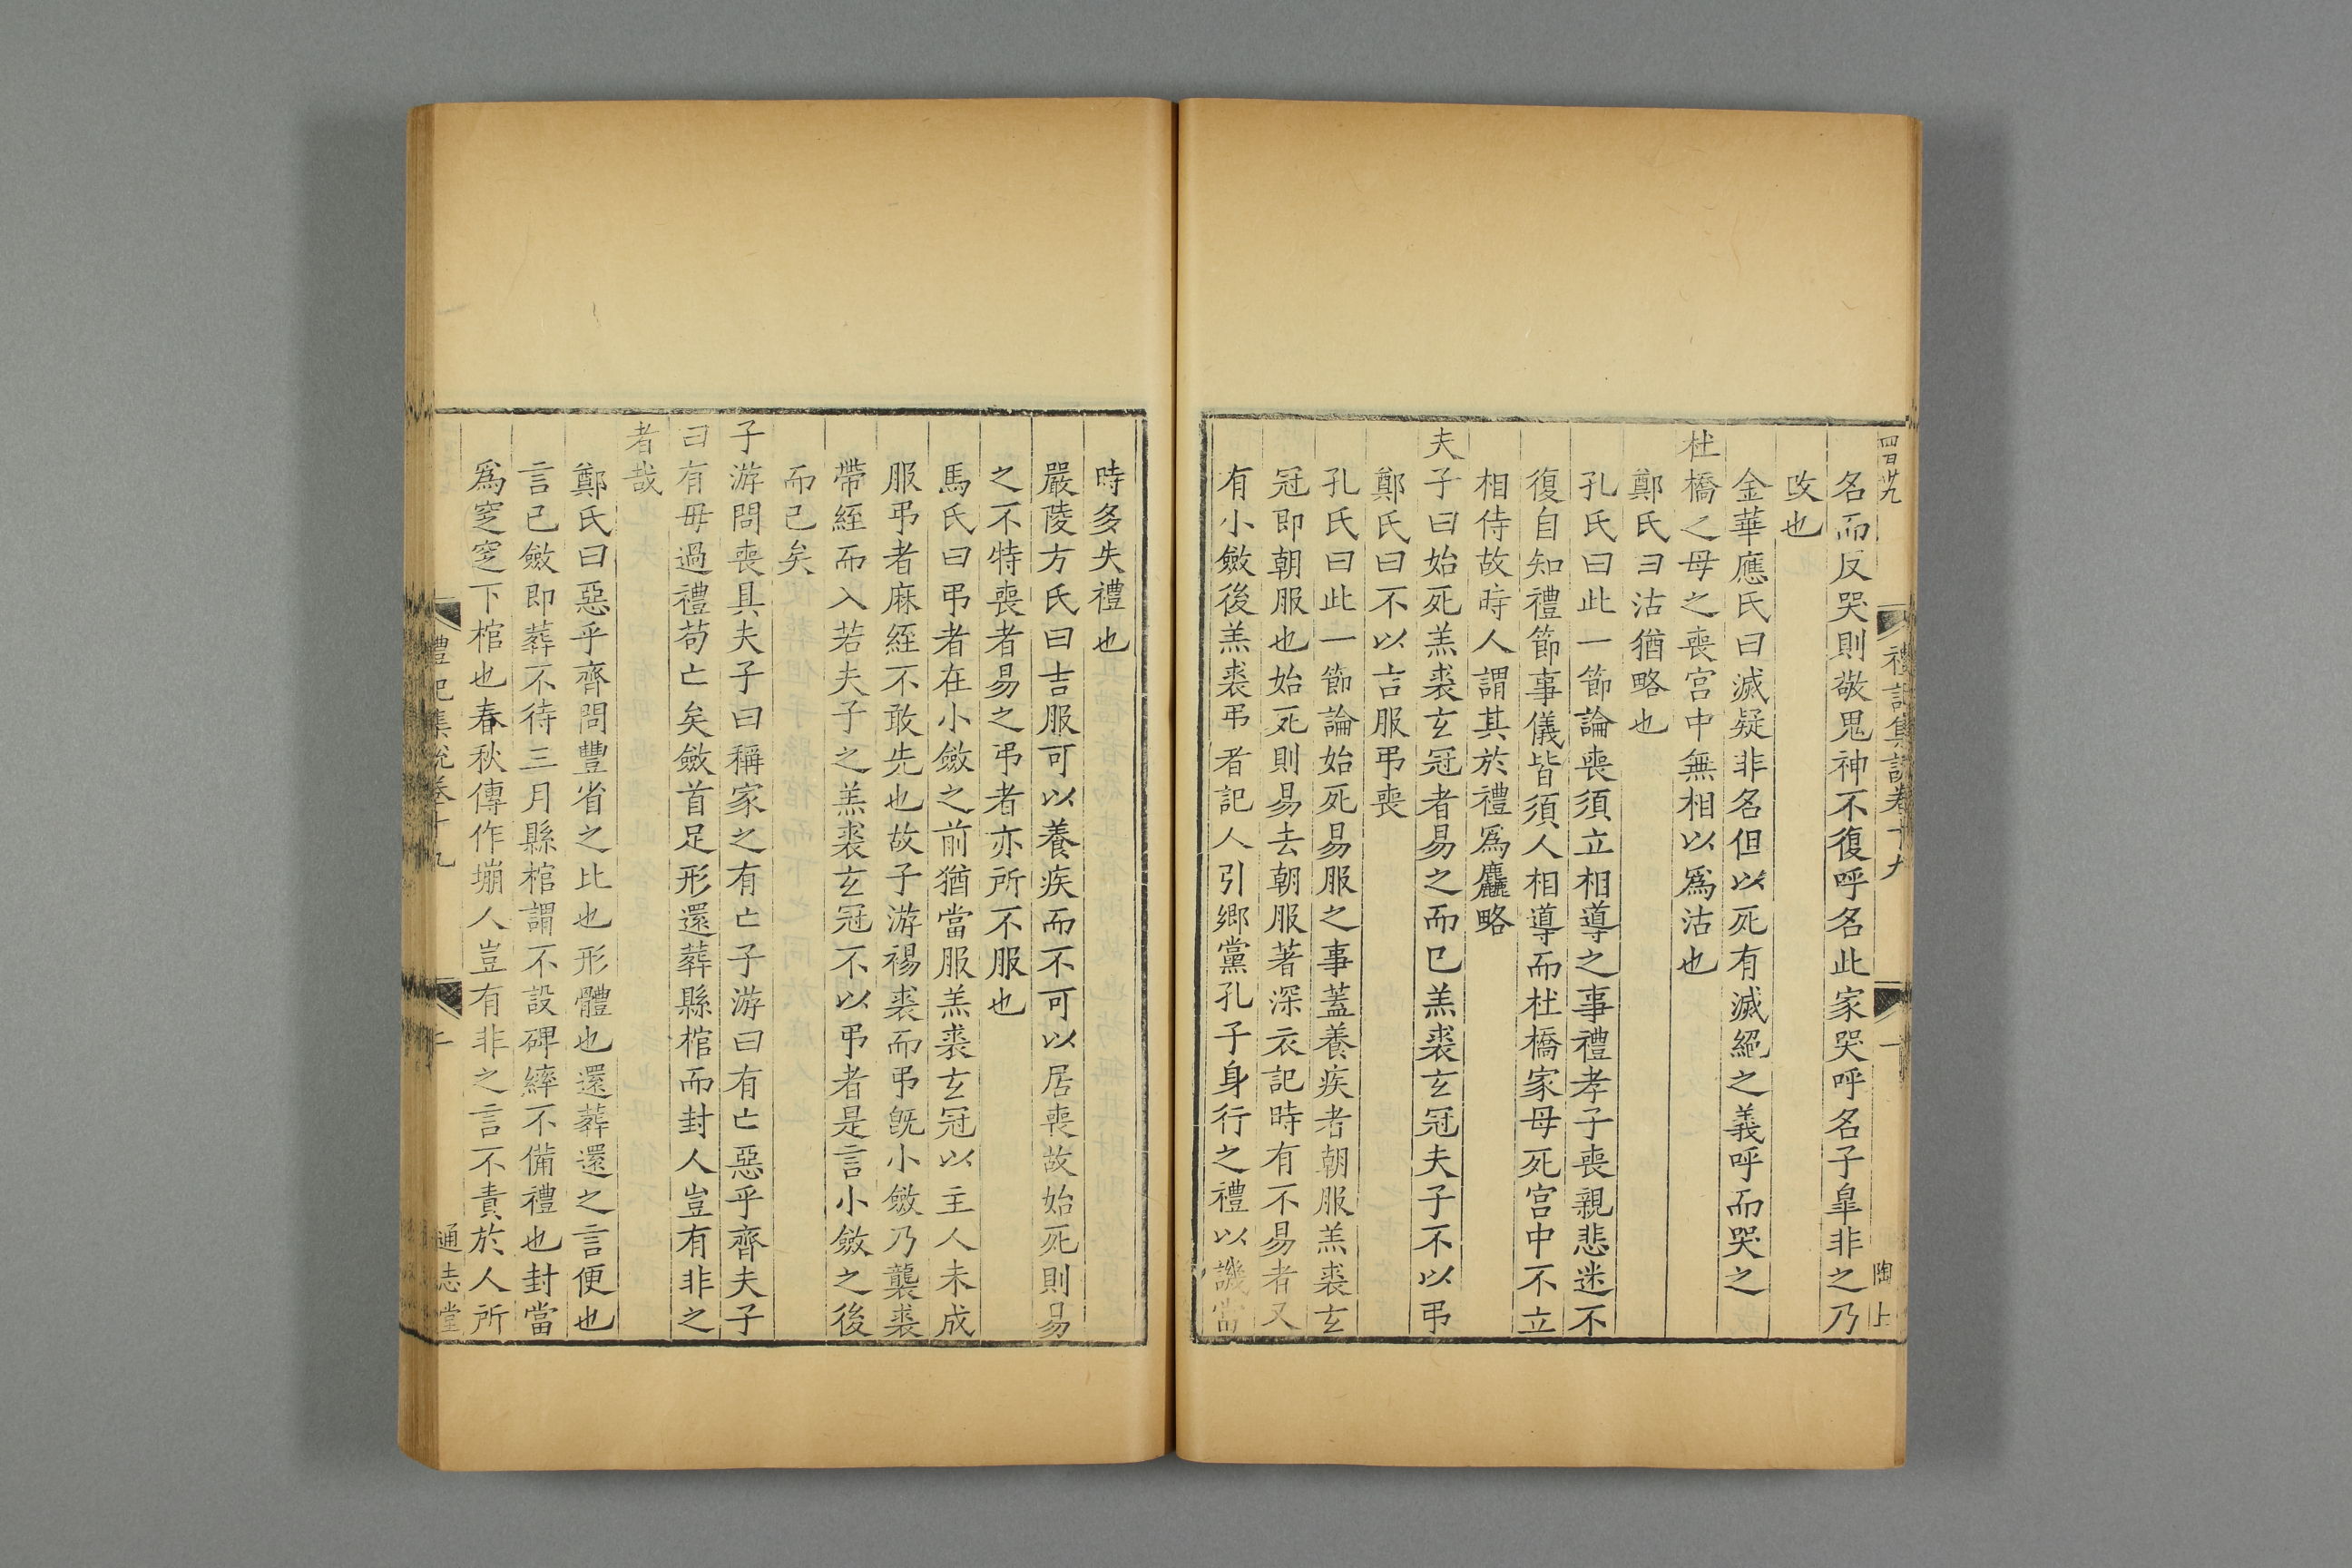 四百廿九
禮記集說卷十九
一
陶上
名而反哭則敬鬼神不復呼名此家哭呼名子臯非之乃
改也
金華應氏曰滅疑非名但以死有滅絕之義呼而哭之
杜橋之母之喪宮中無相以為沽也
鄭氏曰沽猶略也
孔氏曰此一節論喪須立相導之事禮孝子喪親悲迷不
復自知禮節事儀皆須人相導而杜橋家母死宮中不立
相侍故時人謂其於禮為麤略
夫子曰始死羔裘玄冠者易之而已羔裘玄冠夫子不以弔
鄭氏曰不以吉服弔喪
孔氏曰此一節論始死易服之事蓋養疾者朝服羔裘玄
冠即朝服也始死則易去朝服著深衣記時有不易者又
有小斂後羔裘弔者記人引鄉黨孔子身行之禮以譏當
時多失禮也
嚴陵方氏曰吉服可以養疾而不可以居喪故始死則易
之不特喪者易之弔者亦所不服也
馬氏曰弔者在小斂之前猶當服羔裘玄冠以主人未成
服弔者麻絰不敢先也故子游裼裘而弔旣小斂乃襲裘
帶絰而入若夫子之羔裘玄冠不以弔者是言小斂之後
而已矣
子游問喪具夫子曰稱家之有亡子游曰有亡惡乎齊夫子
曰有毋過禮苟亡矣斂首足形還葬縣棺而封人豈有非之
者哉
鄭氏曰惡乎齊問豐省之比也形體也還葬還之言便也
言已斂即葬不待三月縣棺謂不設碑繂不備禮也封當
為窆窆下棺也春秋傳作堋人豈有非之言不責於人所
禮記集說卷十九
二
通志堂